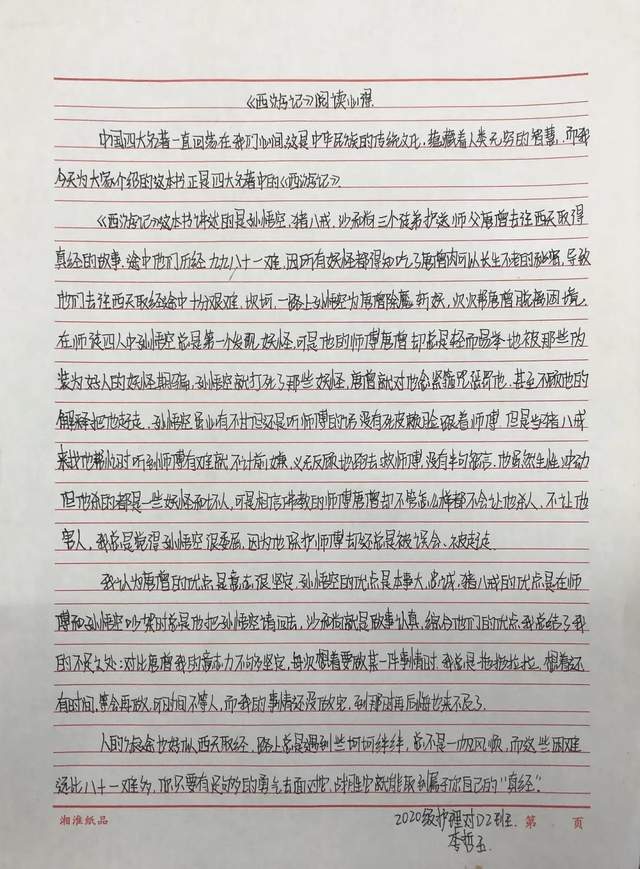 《西游记》阅读心得
中国四大名著一直回荡在我们心间,这是中华民族的传统文化,蕴藏着人类无穷的智慧,而我
今天为大家介绍的这本书正是四大名著中的《西游记》.
《西游记》这本书讲述的是孙悟空、猪八戒、沙和尚三个徒弟护送师父唐僧去往西天取得
真经的故事.途中他们历经九九八十一难,因所有妖怪都得知吃了唐僧肉可以长生不老的秘密,导致
他们去往西天取经途中十分艰难、坎坷,一路上孙悟空为唐僧除魔斩妖,次次帮唐僧脱离困境.
在师徒四人中孙悟空总是第一个发现妖怪,可是他的师傅唐僧却总是轻而易举地被那些伪
装为好人的妖怪欺骗,孙悟空就打死了那些妖怪,唐僧就对他念紧箍咒惩罚他,甚至不顾他的
解释把他赶走.孙悟空虽心有不甘但还是听师傅的话没有死皮赖脸跟着师傅.但是当猪八戒
来找他帮忙时听到师傅有难就不计前嫌,义无反顾地跑去救师傅,没有半句留言.他虽然生性冲动
但他杀的都是一些妖怪和坏人,可是相信佛教的师傅唐僧却不管怎么样都不会让他杀人,不让他
害人,我总是觉得孙悟空很委屈,因为他保护师傅却还总是被误会、被赶走.
我认为唐僧的优点是意志很坚定,孙悟空的优点是本事大,忠诚,猪八戒的优点是在师
傅和孙悟空吵架时总是他把孙悟空请回去,沙和尚就是做事认真,综合他们的优点,我总结了我
的不足之处:对比唐僧我的意志力不够坚定,每次想着要做某一件事情时,我总是拖拖拉拉,想着还
有时间,等会再做,可时间不等人,而我的事情还没做完,到那时再后悔也来不及了.
人的生命也好似西天取经,路上总是遇到些坷坷绊绊,总不是一帆风顺,而这些困难
远比八十一难多,你只要有足够的勇气去面对它,战胜它就能取到属于你自己的"真经".
2020级护理对口2班
李哲玉
湘淮纸品 第 页